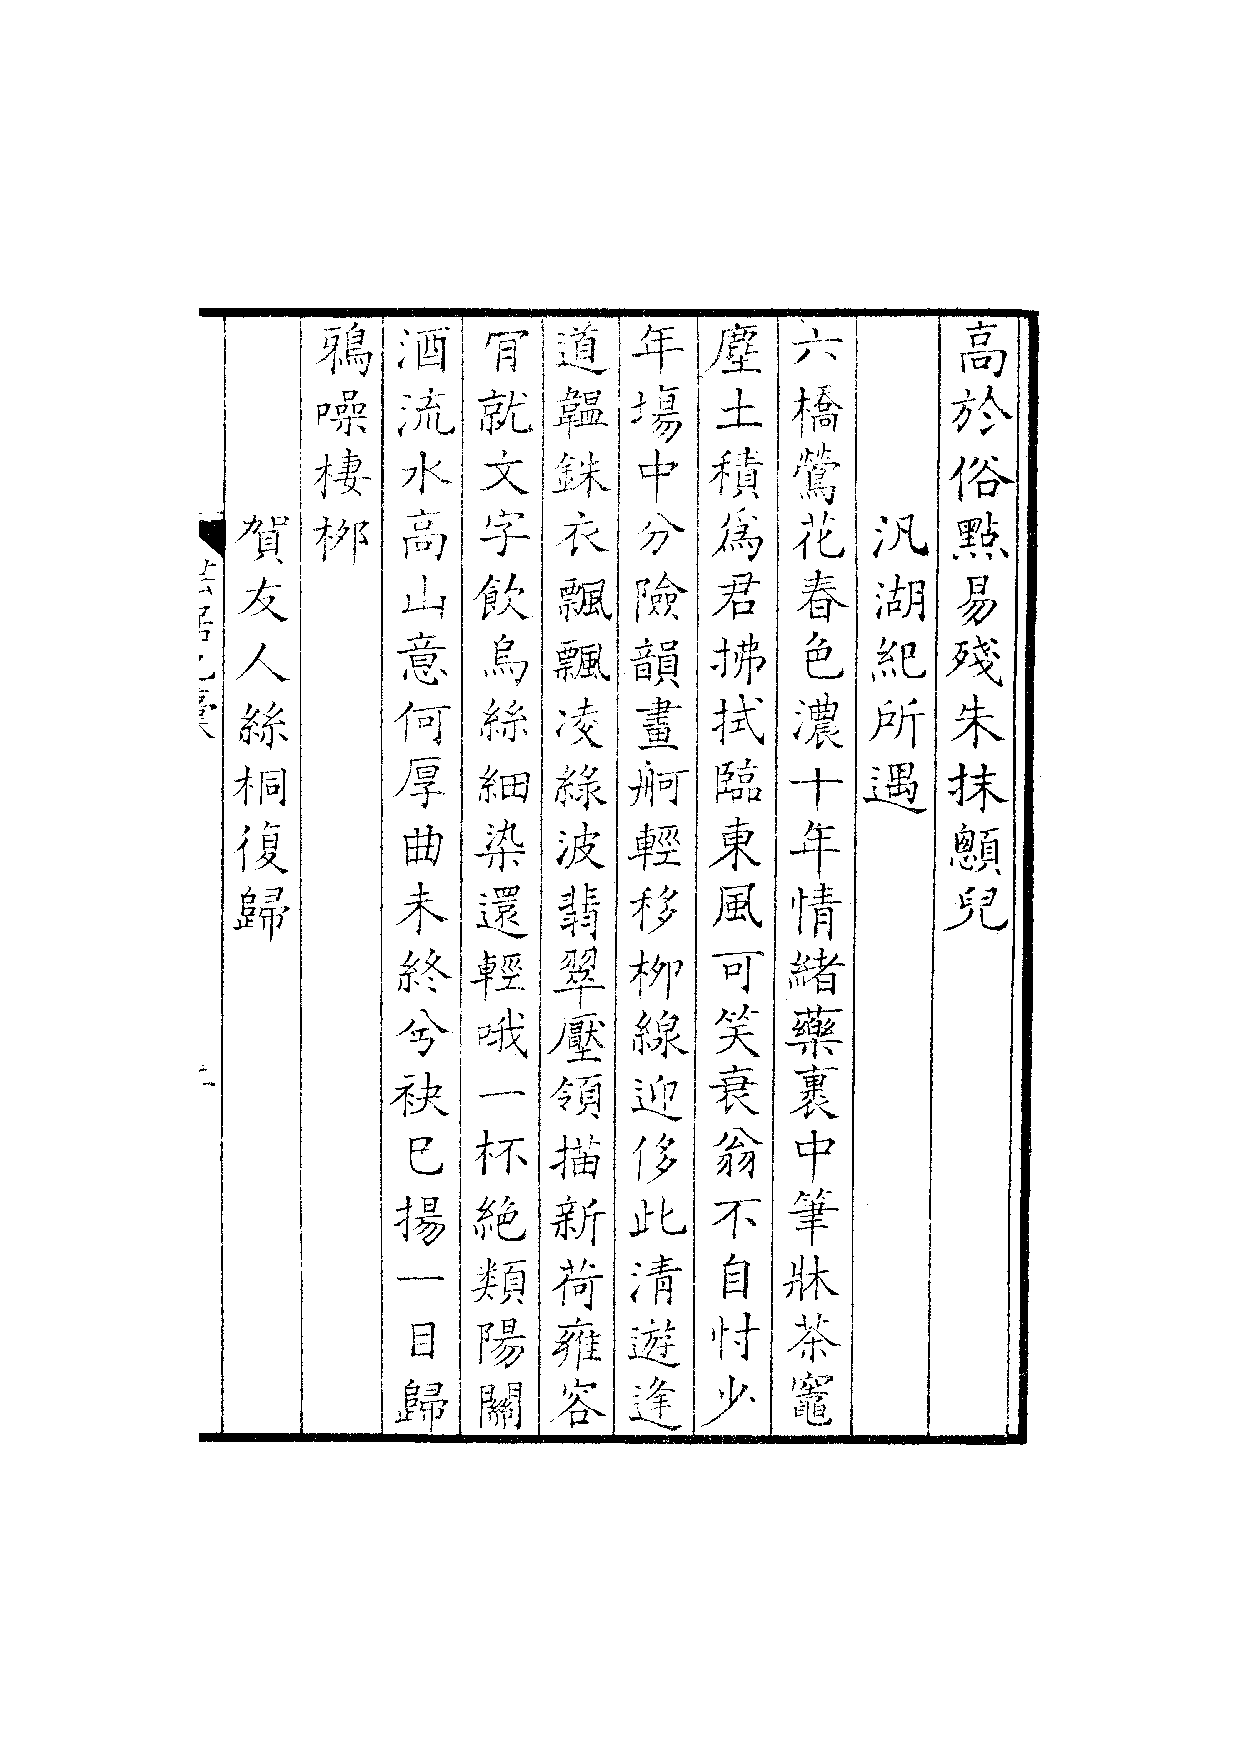 高於俗點易殘朱抹顖兒
汎湖紀所遇
六橋鶯花春色濃十年情緒藥裹中筆牀茶竈
塵土積爲君拂拭臨東風可笑衰翁不自忖少
年塲中分險韻畫舸輕移柳線迎侈此清遊逢
道韞銖衣飄飄凌綠波翡翠壓領描新荷雍容
肎就文字飲烏絲細染還輕哦一杯絕類陽關
酒流水高山意何厚曲未終兮袂已揚一目歸
鴉噪棲柳
賀友人絲桐復歸
芸居乙稾